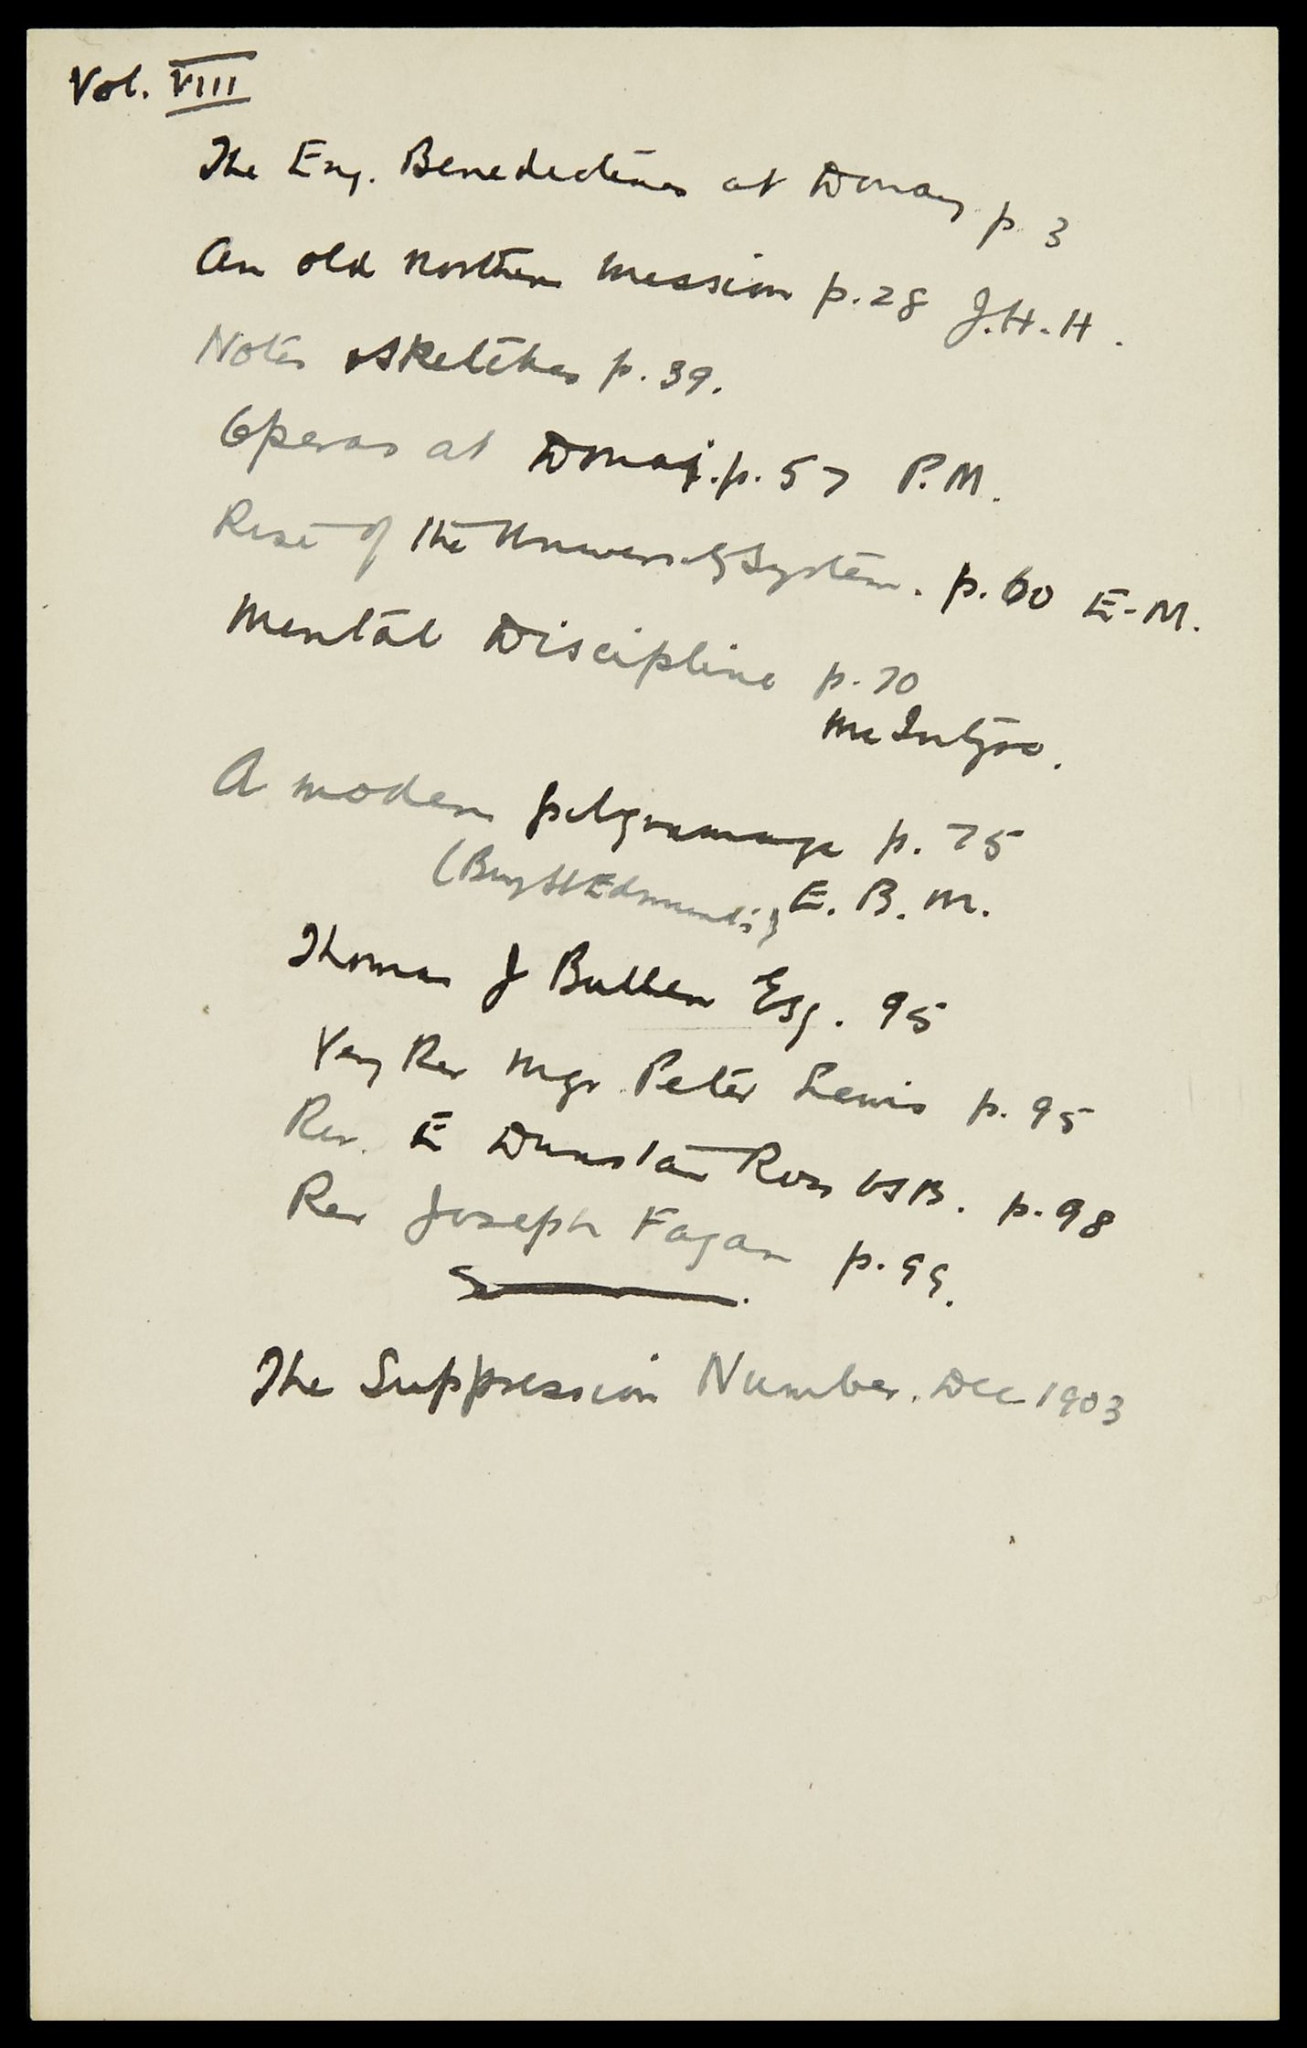 Vol. VIII
The Eng. Benedictines at Douay p. 3
An old northern mission p. 28 J.H.H.
Notes & Sketches p. 39.
Operas at Douai. p. 57 P.M.
Rise of the University System. p. 60 E.M.
Mental Discipline p. 70
McIntyre.
A modern pilgrimage p. 75
(Bury St Edmunds) E.B.M.
Thomas J Bullen Esq. 95
Very Rev Mgr. Peter Lewis p. 95
Rev. E Dunstan Ross OSB. p. 98
Rev Joseph Fagan p. 99.
The Suppression Number. Dec 1903